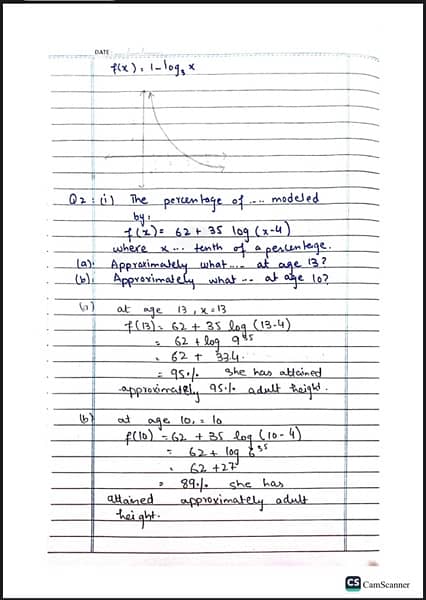 DATE
f(x) = 1-log₃ x
Q2: (i) The percentage of .... modeled
by,
f(x) = 62 + 35 log (x-4)
where x ... tenth of a percentage.
(a). Approximately what .... at age 13?
(b). Approximately what -- at age 10?
(a) at age 13, x=13
f(13) = 62 + 35 log (13-4)
= 62 + log 9³⁵
= 62 + 33.4
= 95% she has attained
approximately 95% adult height.
(b) at age 10, = 10
f(10) = 62 + 35 log (10-4)
= 62 + log 6³⁵
= 62 + 27
= 89% she has
attained approximately adult
height.
CS CamScanner